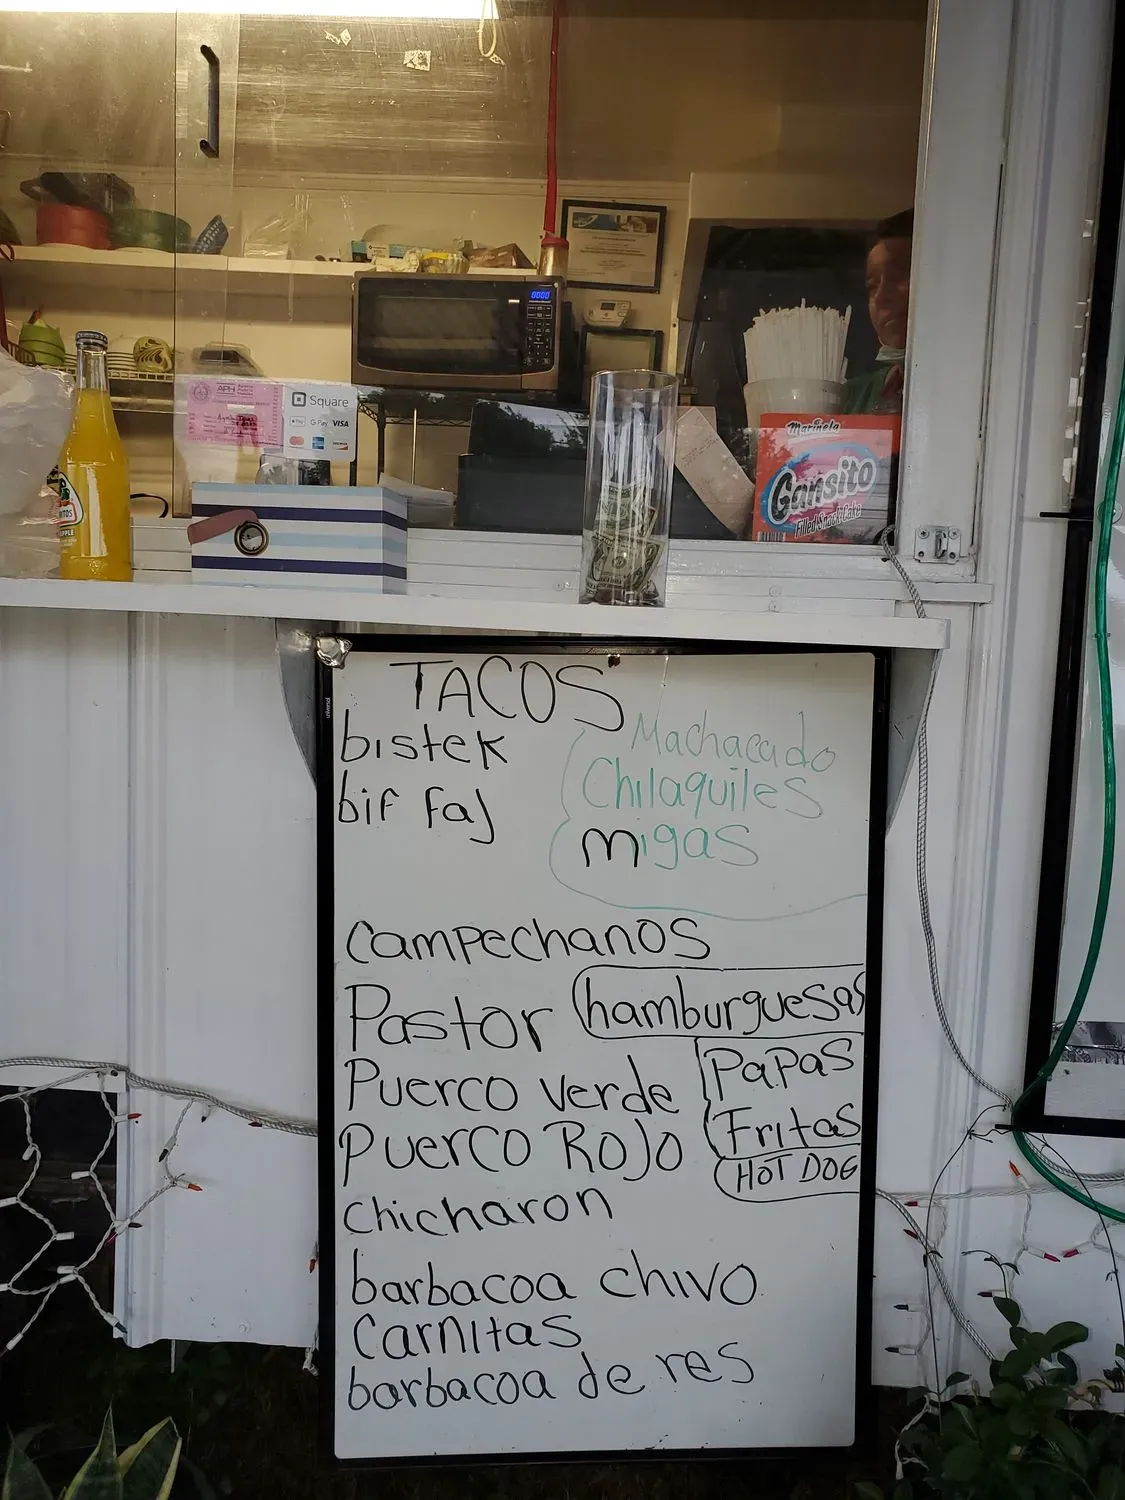 0000
APH
Square
Pay
G Pay
VISA
TOS
PPLE
Marinela
Gansito
Filled Snack Cake
universal
TACOS
bistek
bif faj
Machacado
Chilaquiles
migas
campechanos
Pastor
hamburguesas
Puerco verde
Papas
Fritas
Puerco Rojo
HOT DOG
chicharon
barbacoa chivo
Carnitas
barbacoa de res